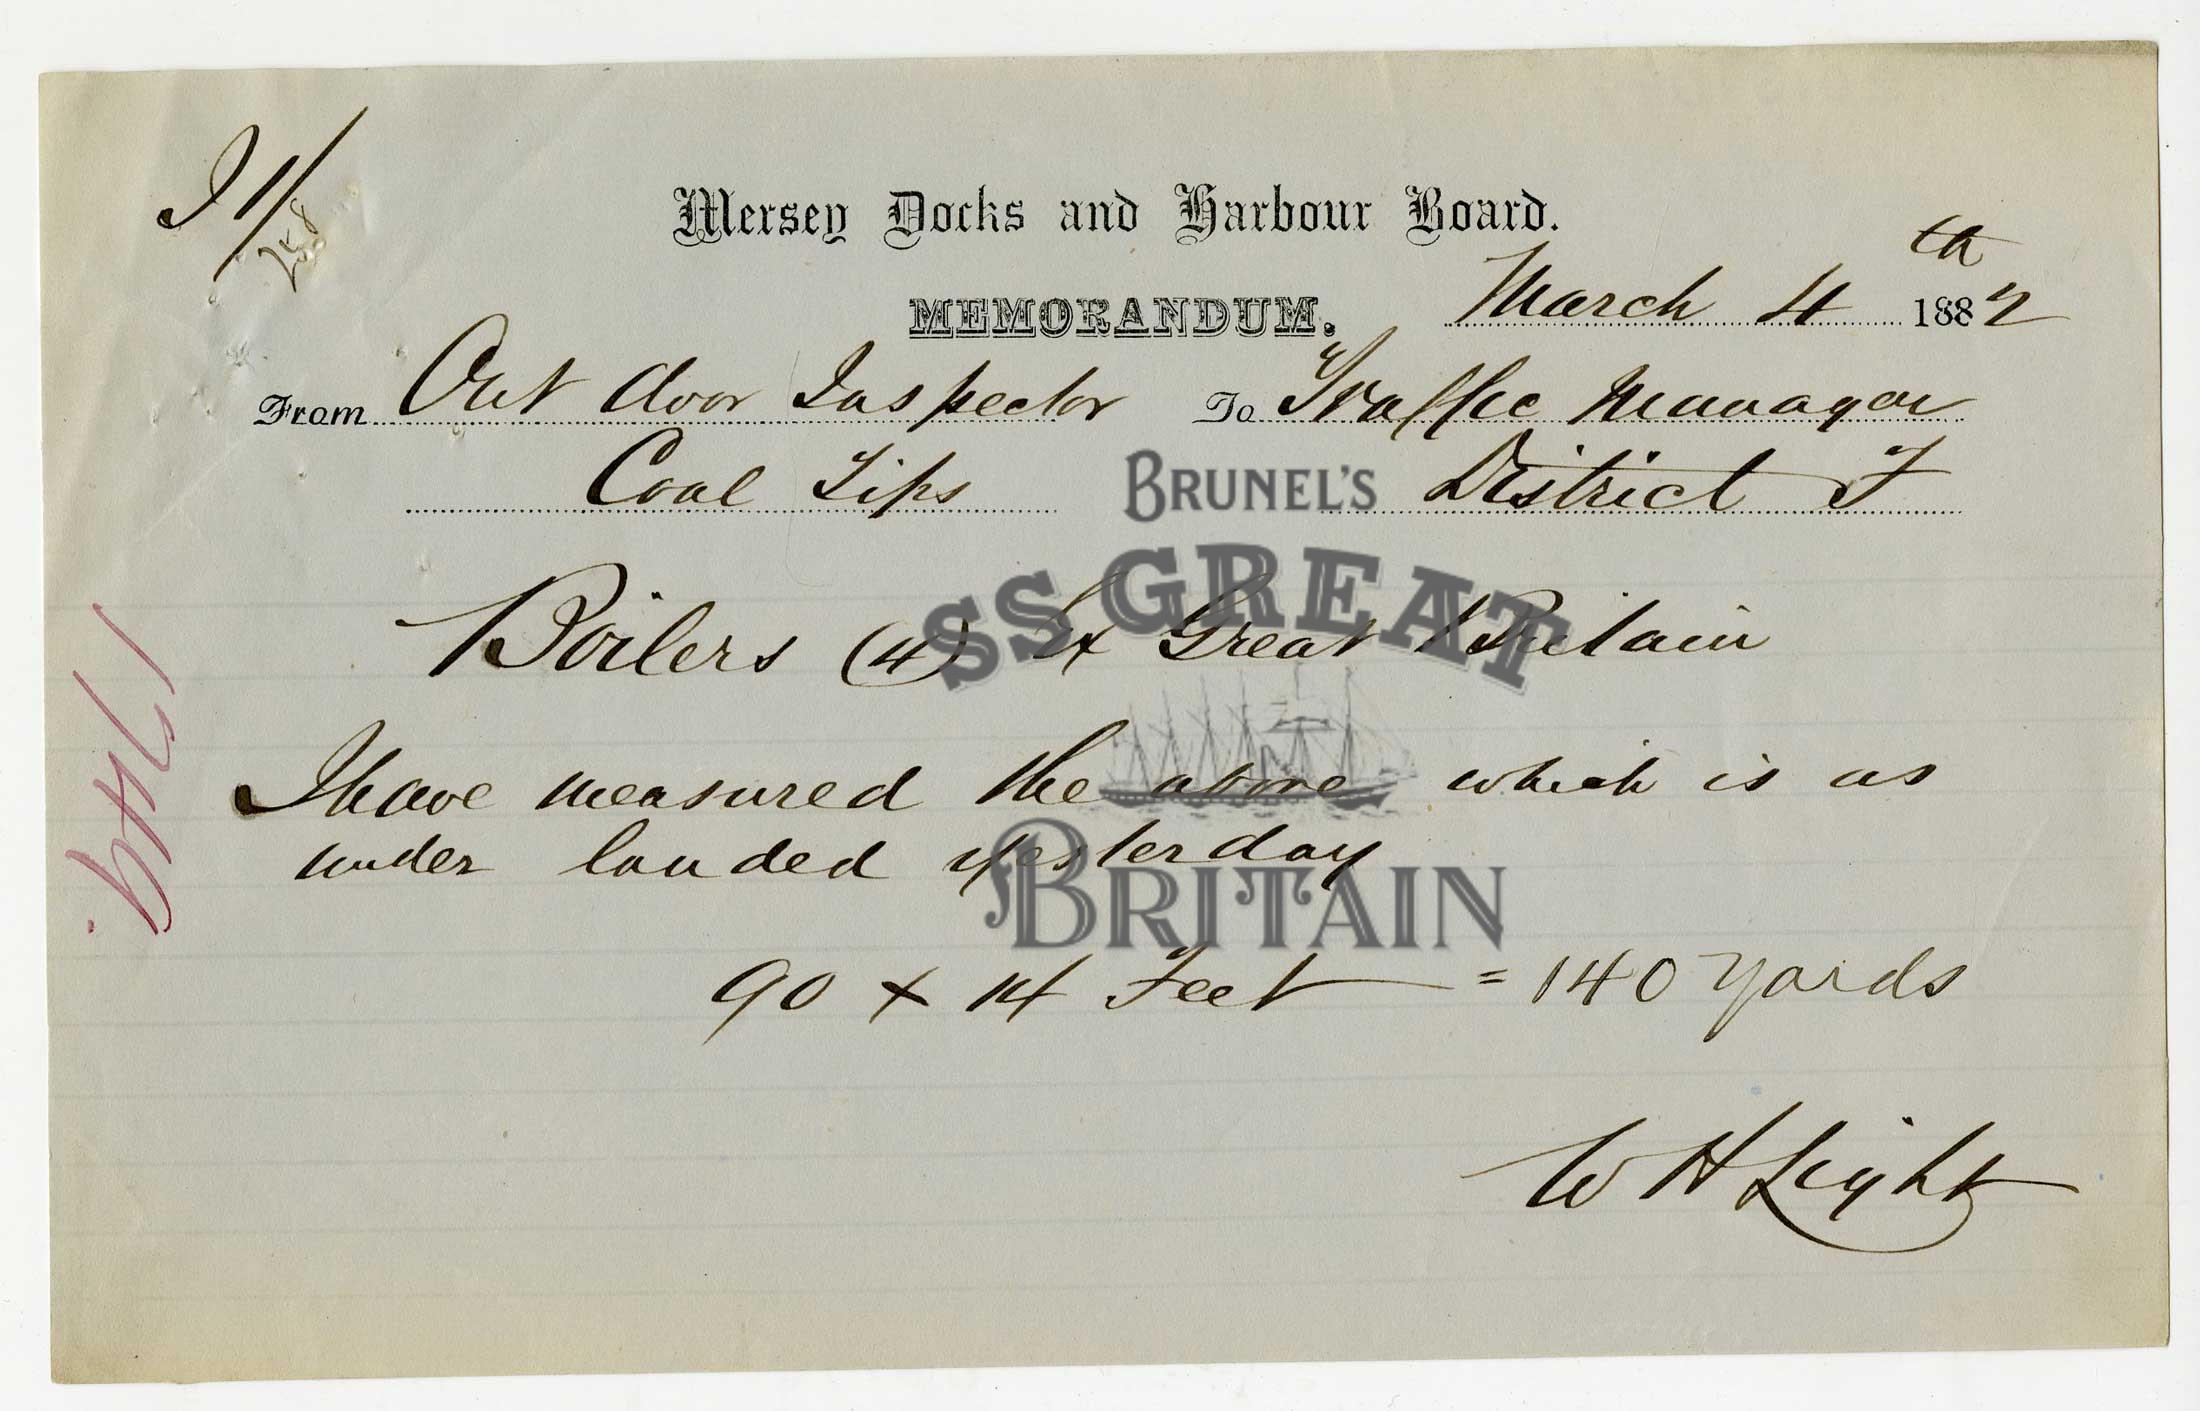 I 1/
258
Mersey Docks and Harbour Board.
MEMORANDUM. March 4th 1882
From Out door Inspector To Traffic Manager
Coal Tips District F
Boilers (4) Ex Great Britain
I have measured the above which is as
under landed yesterday
90 x 14 Feet = 140 Yards
W H Light
BRUNEL'S
SS GREAT
BRITAIN